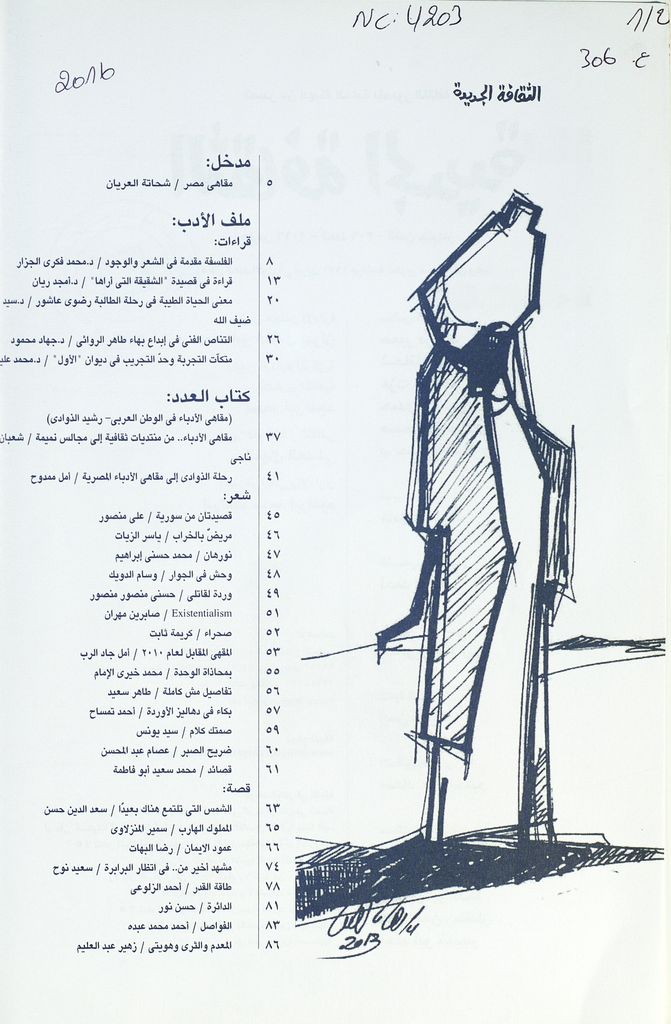 NC: 4203
1/2
306 ع
2016
الثقافة الجديدة
مدخل:
مقاهى مصر / شحاتة العريان ٥
ملف الأدب:
قراءات:
الفلسفة مقدمة فى الشعر والوجود / د.محمد فكرى الجزار ٨
قراءة فى قصيدة "الشقيقة التى أراها" / د.أمجد ريان ١٣
معنى الحياة الطيبة فى رحلة الطالبة رضوى عاشور / د.سيد ٢٠
ضيف الله
التناص الفنى فى إبداع بهاء طاهر الروائى / د.جهاد محمود ٢٦
متكآت التجربة وحدّ التجريب فى ديوان "الأول" / د.محمد ٣٠
كتاب العدد:
(مقاهى الأدباء فى الوطن العربى– رشيد الذوادى)
مقاهى الأدباء.. من منتديات ثقافية إلى مجالس نميمة / شعبان ٣٧
ناجى
رحلة الذوادى إلى مقاهى الأدباء المصرية / أمل ممدوح ٤١
شعر:
قصيدتان من سورية / على منصور ٤٥
مريضٌ بالخراب / ياسر الزيات ٤٦
نورهان / محمد حسنى إبراهيم ٤٧
وحش فى الجوار / وسام الدويك ٤٨
وردة لقاتلى / حسنى منصور منصور ٤٩
Existentialism / صابرين مهران ٥١
صحراء / كريمة ثابت ٥٢
المقهى المقابل لعام ٢٠١٠ / أمل جاد الرب ٥٣
بمحاذاة الوحدة / محمد خيرى الإمام ٥٥
تفاصيل مش كاملة / طاهر سعيد ٥٦
بكاء فى دهاليز الأوردة / أحمد تمساح ٥٧
صمتك كلام / سيد يونس ٥٩
ضريح الصبر / عصام عبد المحسن ٦٠
قصائد / محمد سعيد أبو فاطمة ٦١
قصة:
الشمس التى تلتمع هناك بعيدًا / سعد الدين حسن ٦٣
المملوك الهارب / سمير المنزلاوى ٦٥
عمود الايمان / رضا البهات ٦٦
مشهد أخير من.. فى انتظار البرابرة / سعيد نوح ٧٤
طاقة القدر / أحمد الزلوعى ٧٨
الدائرة / حسن نور ٨١
الفواصل / أحمد محمد عبده ٨٣
المعدم والثرى وهويتى / زهير عبد العليم ٨٦
2013